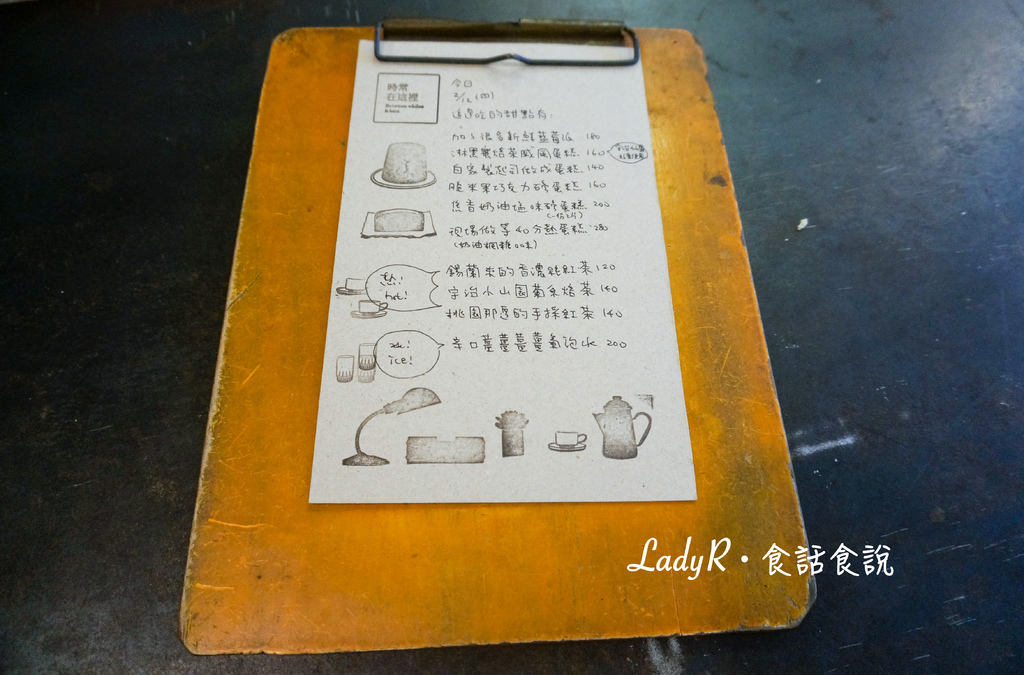 時常
在這裡
今日
2/12 (四)
這邊吃的甜點有:
加了很多新鮮藍莓派 180
淋黑蜜焙茶戚風蛋糕 160
自家製起司做成蛋糕 140
脆米果巧克力磅蛋糕 160
焦香奶油塩味磅蛋糕 200
(一份2片)
現場做等40分熱蛋糕 280
(奶油楓糖口味)
熱!
hot!
錫蘭來的香濃純紅茶 120
宇治小山園菊系焙茶 140
桃園那邊的手採紅茶 140
冰!
ice!
辛口薑薑薑薑氣泡水 200
LadyR・食話食說